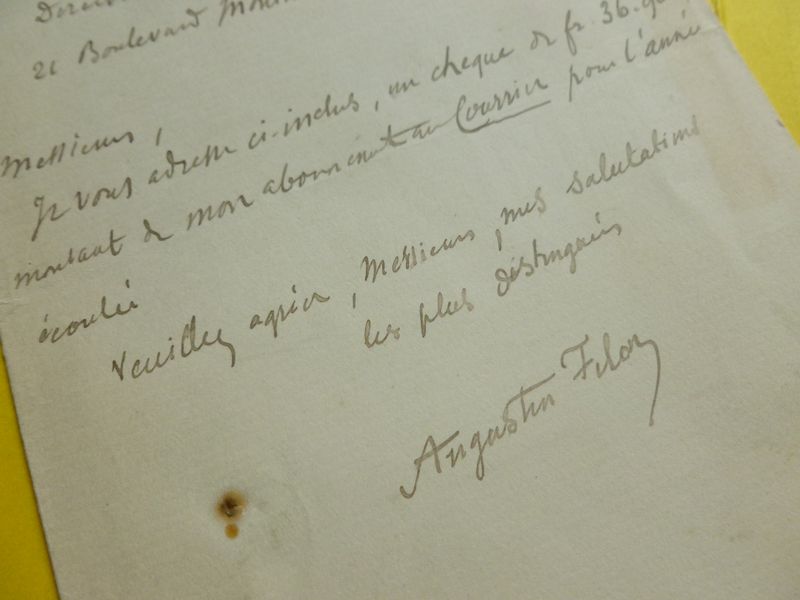 21 Boulevard
Messieurs,
Je vous adresse ci-inclus, un chèque de fr. 36.90
montant de mon abonnement au Courrier pour l'année
écoulée
Veuillez agréer, Messieurs, mes salutations
les plus distinguées
Augustin Filon